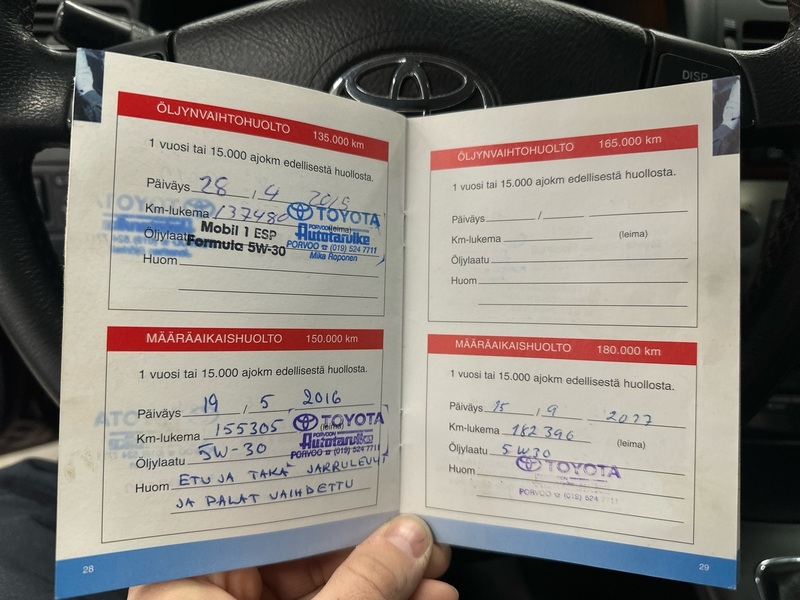 DISP
ÖLJYNVAIHTOHUOLTO 135.000 km
1 vuosi tai 15.000 ajokm edellisestä huollosta.
Päiväys 28 / 4 2015
Km-lukema 137480 (leima)
Öljylaatu Mobil 1 ESP
Formula 5W-30
TOYOTA
PORVOON
Autotarvike
PORVOO ☎ (019) 524 7711
Mika Roponen
Huom
MÄÄRÄAIKAISHUOLTO 150.000 km
1 vuosi tai 15.000 ajokm edellisestä huollosta.
Päiväys 19 / 5 2016
Km-lukema 155305 (leima)
Öljylaatu 5W-30
TOYOTA
PORVOON
Autotarvike
PORVOO ☎ (019) 524 7711
Huom ETU JA TAKA JARRULEVYT
JA PALAT VAIHDETTU
28
ÖLJYNVAIHTOHUOLTO 165.000 km
1 vuosi tai 15.000 ajokm edellisestä huollosta.
Päiväys / 
Km-lukema (leima)
Öljylaatu
Huom
MÄÄRÄAIKAISHUOLTO 180.000 km
1 vuosi tai 15.000 ajokm edellisestä huollosta.
Päiväys 15 / 9
Km-lukema 182396 (leima)
Öljylaatu 5W30
Huom
TOYOTA
PORVOO ☎ (019) 524 7711
29